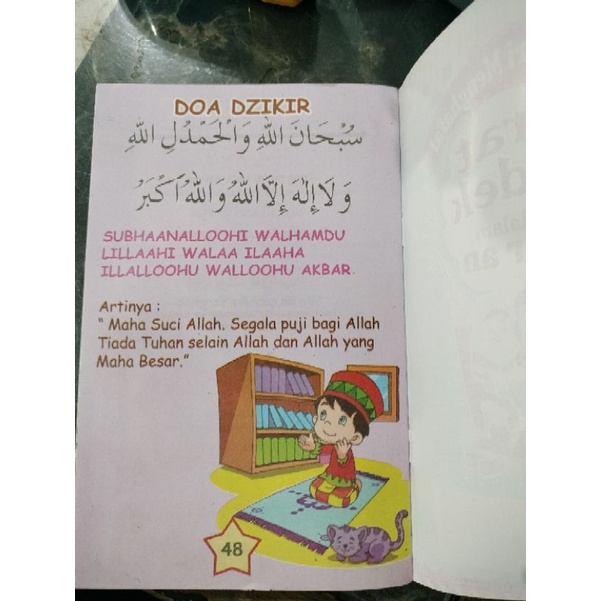 DOA DZIKIR
سُبْحَانَ اللهِ وَالْحَمْدُلِ اللهِ
وَلَا إِلٰهَ إِلَّا اللهُ وَاللهُ اَكْبَرُ
SUBHAANALLOOHI WALHAMDU
LILLAAHI WALAA ILAAHA
ILLALLOOHU WALLOOHU AKBAR.
Artinya :
“ Maha Suci Allah. Segala puji bagi Allah
Tiada Tuhan selain Allah dan Allah yang
Maha Besar.”
48